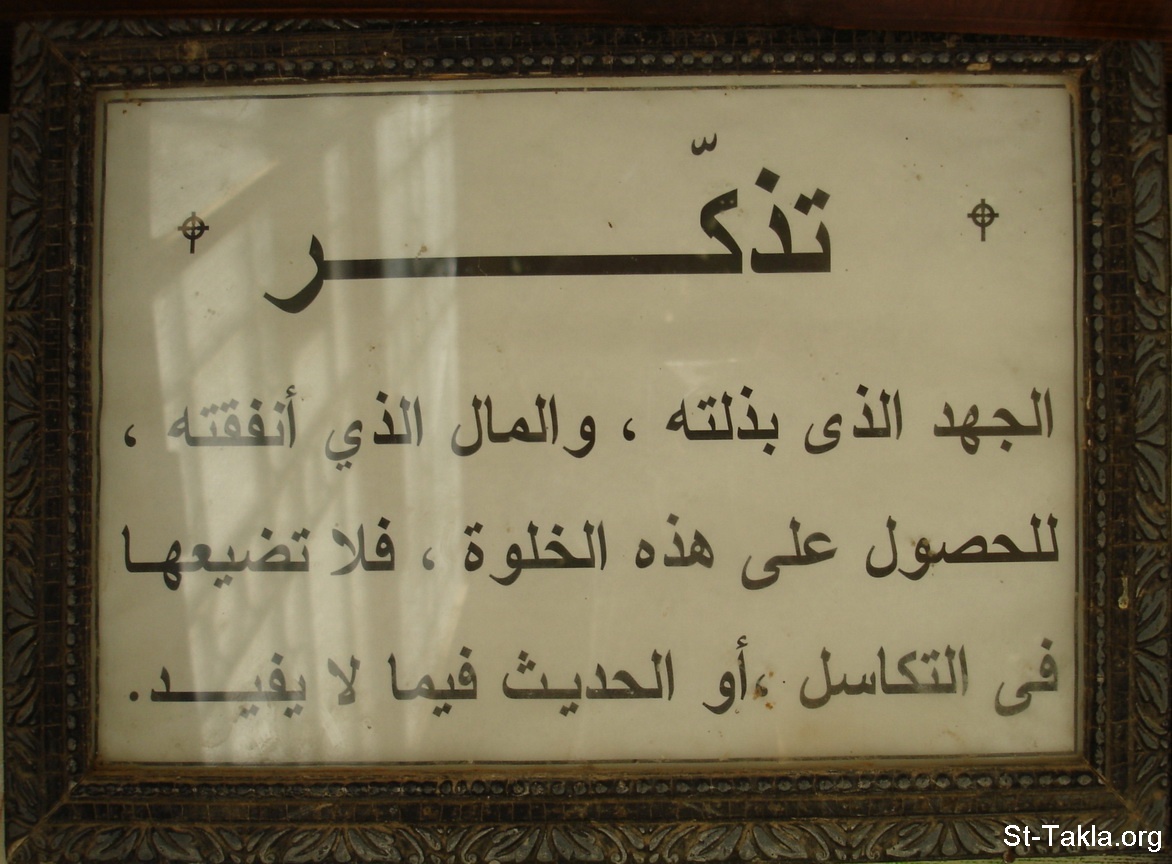 تذكّر
الجهد الذى بذلته ، والمال الذي أنفقته ،
للحصول على هذه الخلوة ، فلا تضيعها
فى التكاسل ،أو الحديث فيما لا يفيد.
St-Takla.org